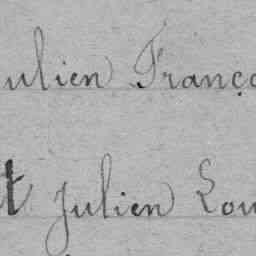 ulien Franço
t Julien Lou